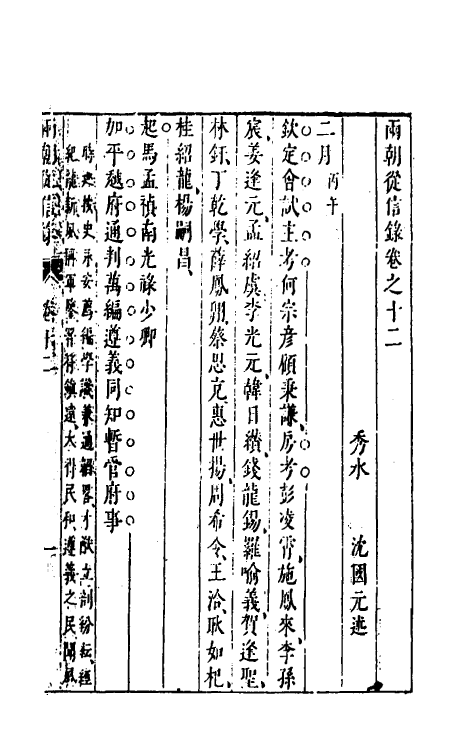 兩朝從信錄卷之十二
秀水 沈國元述
二月丙午
欽定會試主考何宗彥顧秉謙房考彭凌霄施鳳來李孫
宸姜逢元孟紹虞李光元韓日纘錢龍錫羅喻義賀逢聖
林釬丁乾學薛鳳翔蔡思充惠世揚周希令王洽耿如杞
桂紹龍楊嗣昌
起馬孟禎南光祿少卿
加平越府通判萬編遵義同知暫管府事
時 按史 永安萬編學識兼通 才猷立剖紛紜經
大得民和遵義之民聞風
兩朝從信錄 卷十二 一